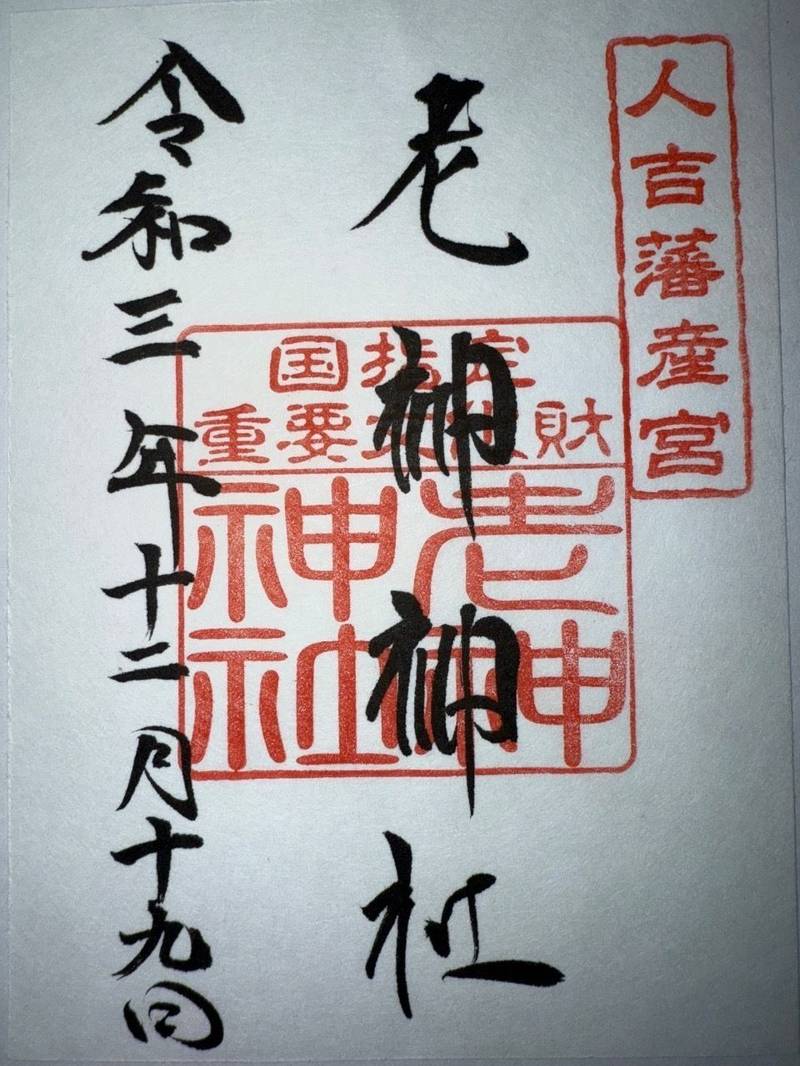 人吉藩産宮
老神神社
国指定
重要文化財
老神
神社
令和三年十二月十九日